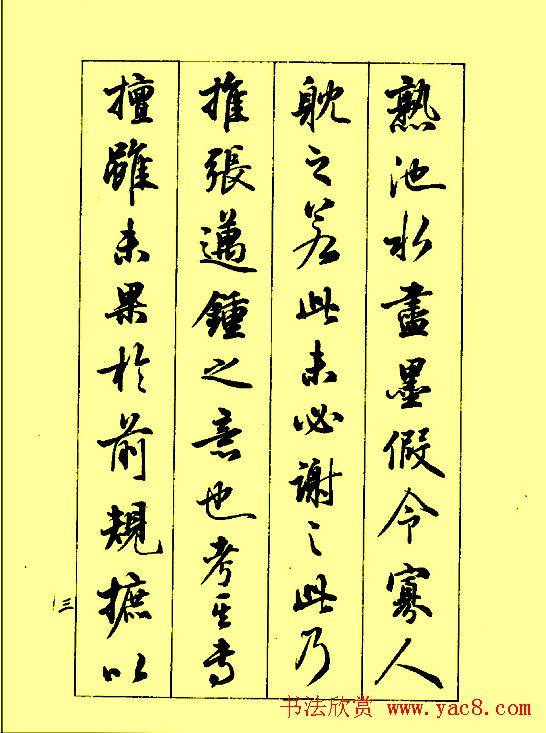 熟池水盡墨假令寡人
耽之若此未必謝之此乃
推張邁鍾之意也考其專
擅雖未果於前規摭以
三
书法欣赏 www.yac8.com